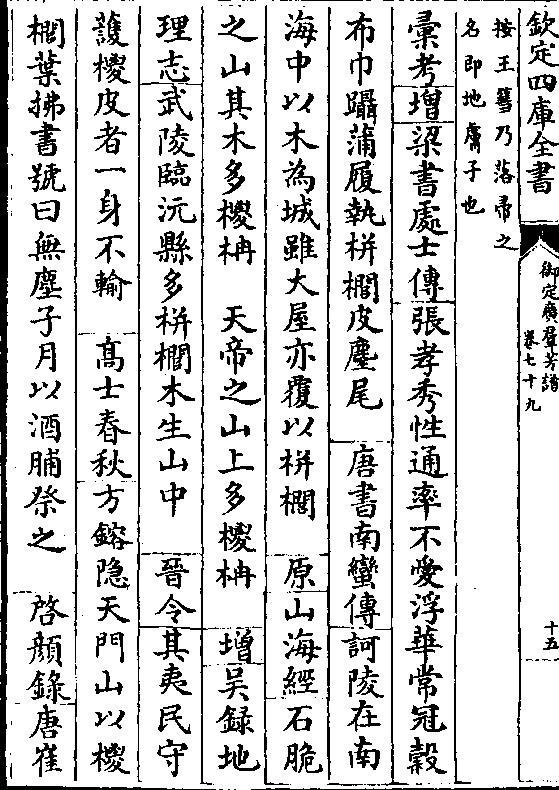 欽定四庫全書
御定廣羣芳譜
卷七十九
十五
按王篲乃落帚之
名即地膚子也
彚考增梁書處士傳張孝秀性通率不愛浮華常冠榖
布巾躡蒲履執栟櫚皮麈尾　唐書南蠻傳訶陵在南
海中以木為城雖大屋亦覆以栟櫚　原山海經石脆
之山其木多椶枏　天帝之山上多椶枏　增吳録地
理志武陵臨沅縣多栟櫚木生山中　晉令其夷民守
護椶皮者一身不輸　髙士春秋方鎔隐天門山以椶
櫚葉拂書號曰無塵子月以酒脯祭之　啓顔錄唐崔